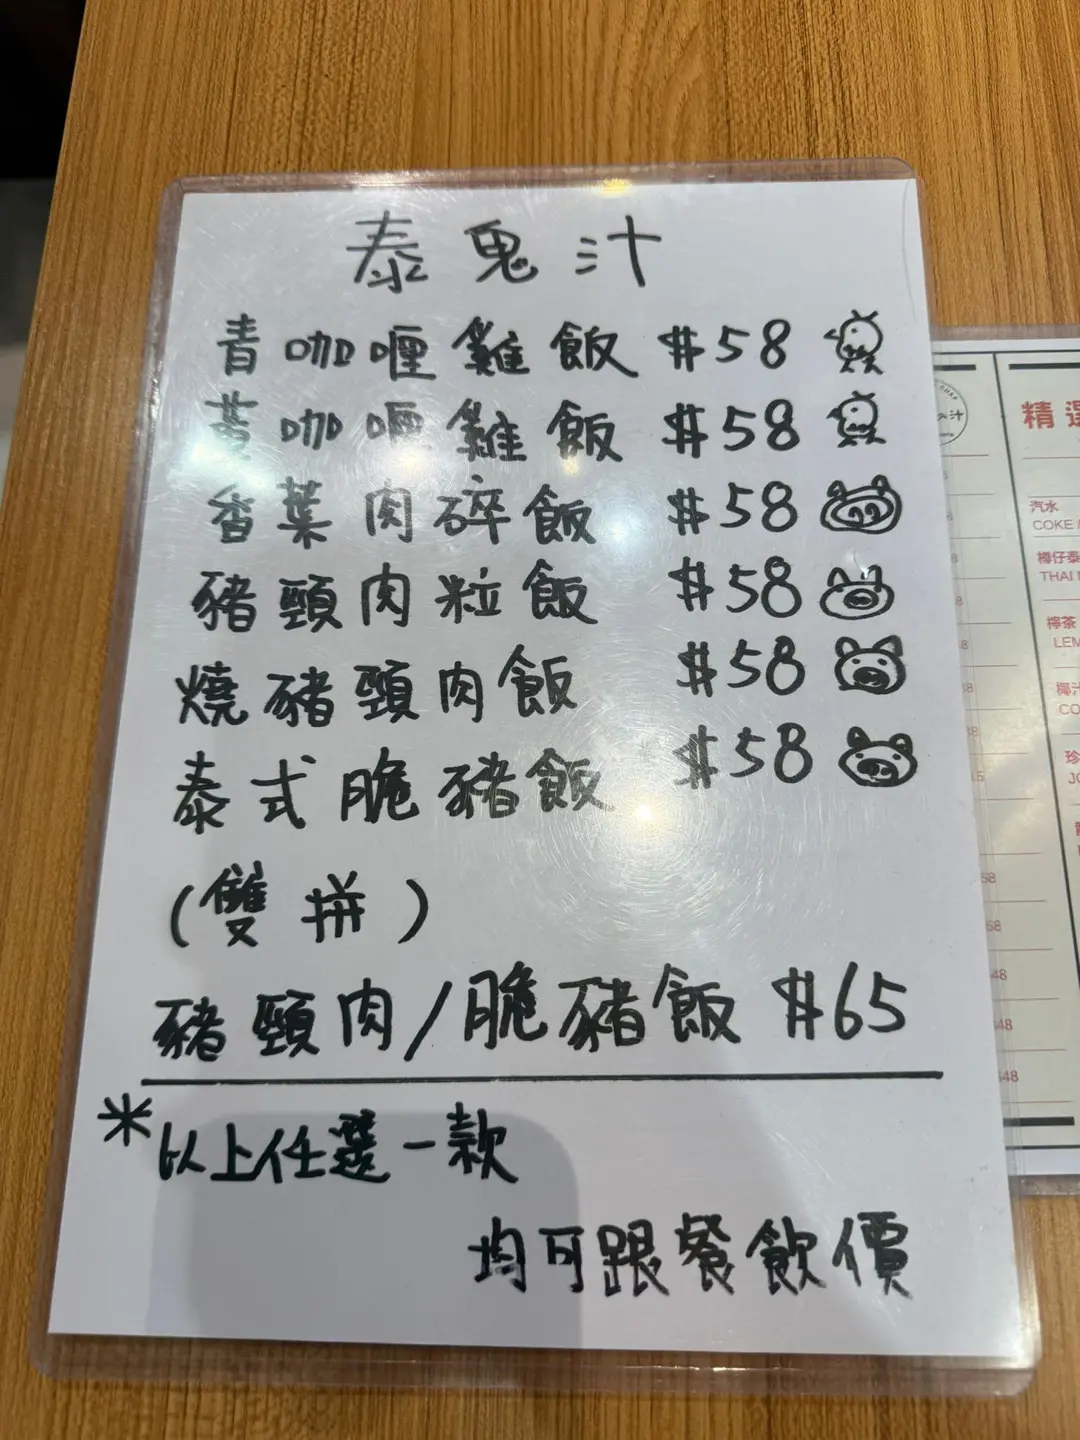 泰鬼汁
青咖喱雞飯 $58
黃咖喱雞飯 $58
香葉肉碎飯 $58
豬頸肉粒飯 $58
燒豬頸肉飯 $58
泰式脆豬飯 $58
(雙拼)
豬頸肉/脆豬飯 $65
*以上任選一款
均可跟餐飲價
汁
精選
汽水
COKE
THAI
檸茶
LEM
椰汁
CO
珍
58
58
48